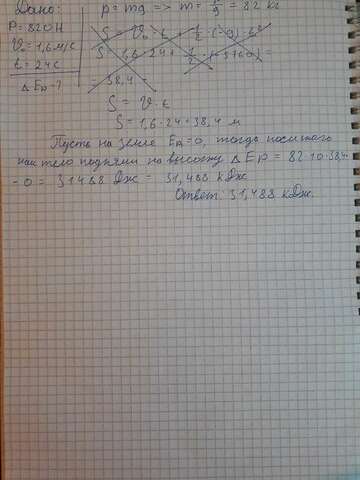 Дано:
P = 820 Н
V₀ = 1,6 м/с
t = 24 с
Δ Eр - ?
p = mg => m = P/g = 82 кг
S = V₀ · t + 1/2 · (-g) · t²
S = 1,6 · 24 +
= 38,4 -
S = V · t
S = 1,6 · 24 = 38,4 м
Пусть на земле Eп = 0, тогда после того
как тело подняли на высоту Δ Eр = 82 · 10 · 38,4-
- 0 = 31488 Дж = 31,488 кДж
Ответ: 31,488 кДж.